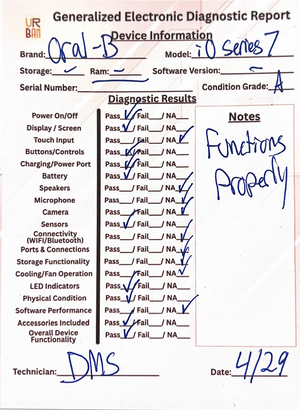 UR
BAN
Generalized Electronic Diagnostic Report
Device Information
Brand: Oral-B Model: iO series 7
Storage: Ram: Software Version:
Serial Number: Condition Grade: A
Diagnostic Results
Power On/Off Pass ✓/ Fail / NA
Display / Screen Pass ✓/ Fail / NA
Touch Input Pass / Fail / NA ✓
Buttons/Controls Pass ✓/ Fail / NA
Charging/Power Port Pass ✓/ Fail / NA
Battery Pass ✓/ Fail / NA
Speakers Pass / Fail / NA ✓
Microphone Pass / Fail / NA ✓
Camera Pass / Fail / NA ✓
Sensors Pass ✓/ Fail / NA
Connectivity
(WIFI/Bluetooth) Pass / Fail / NA ✓
Ports & Connections Pass / Fail / NA ✓
Storage Functionality Pass / Fail / NA ✓
Cooling/Fan Operation Pass / Fail / NA ✓
LED Indicators Pass ✓/ Fail / NA
Physical Condition Pass ✓/ Fail / NA
Software Performance Pass / Fail / NA ✓
Accessories Included Pass ✓/ Fail / NA
Overall Device
Functionality Pass ✓/ Fail / NA
Notes
Functions
Properly
Technician: DMS Date: 4/29